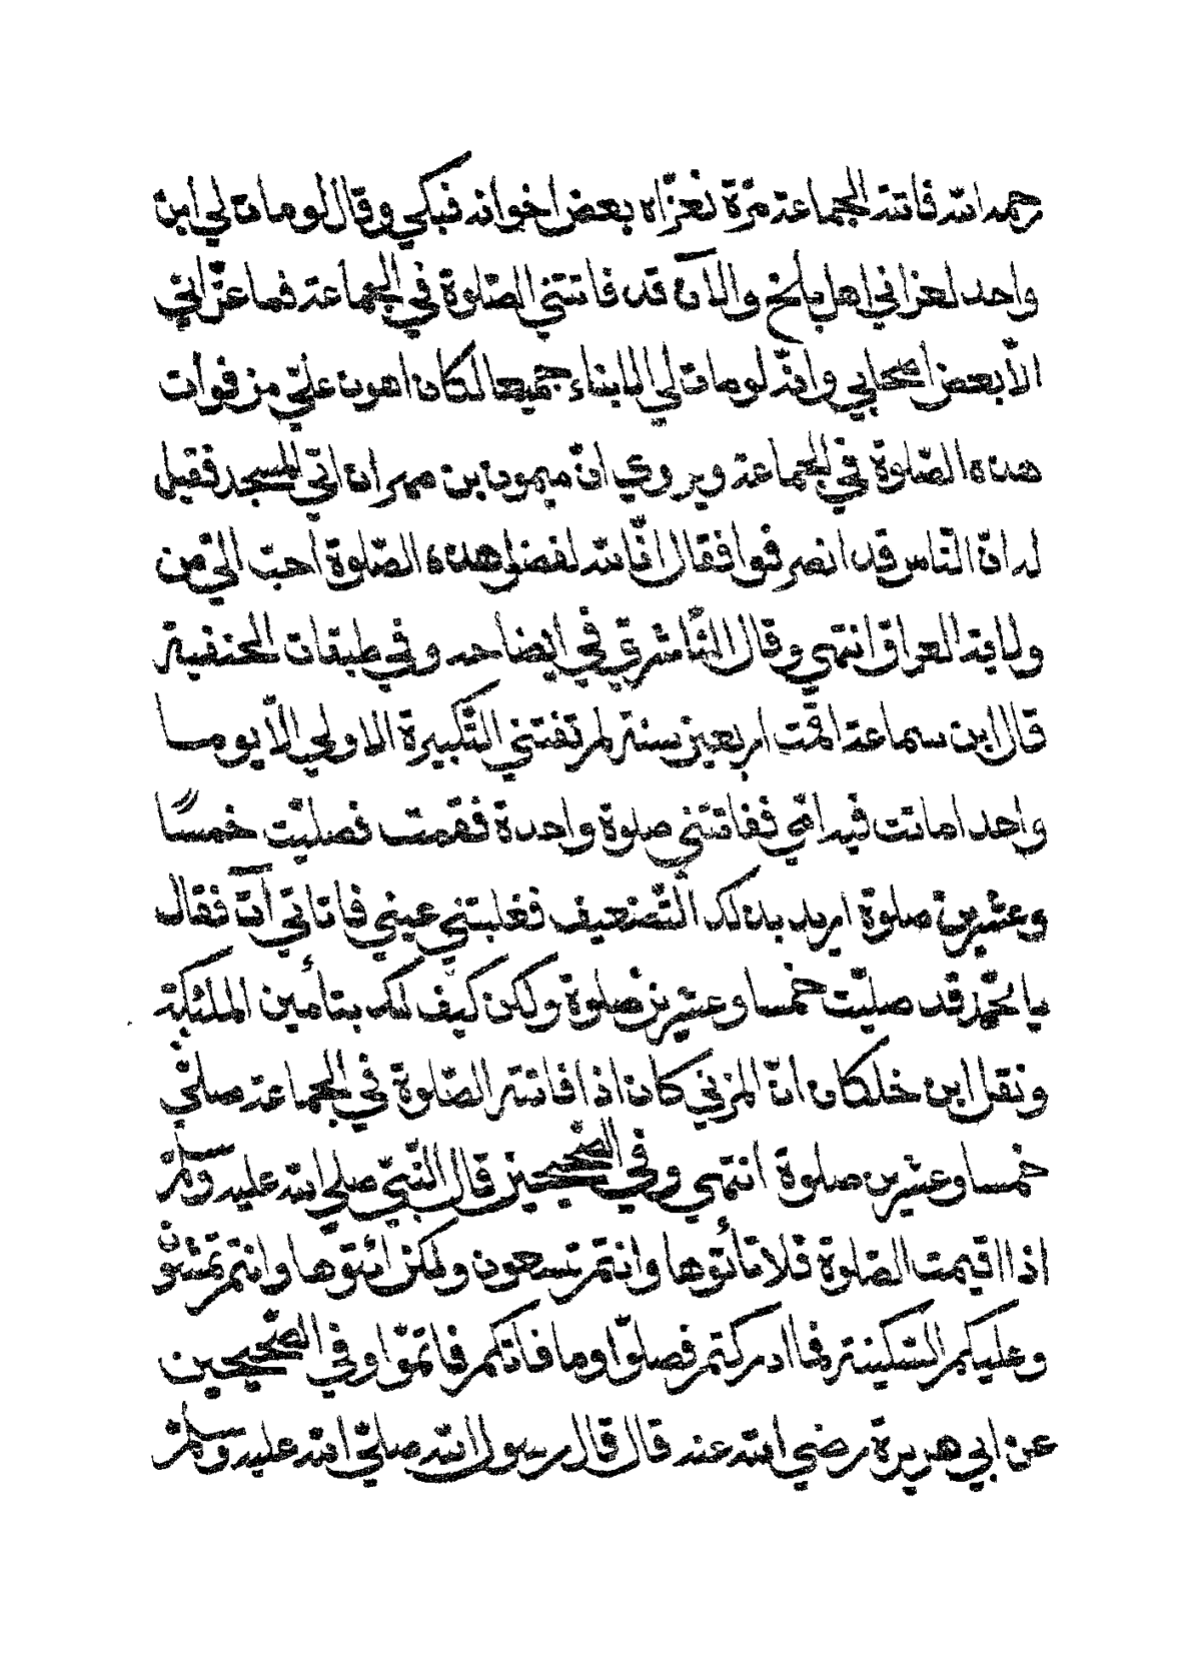 حمه الله فاتته الجماعة مرّة فعزّاه بعض اخوانه فبكي وقال لو مات لي ابن
واحد لعزاني اهل بلخ والآن قد فاتتني الصّلوة في الجماعة فما عزّاني
الّا بعض اصحابي وانّه لو مات لي الابناء جميعا لكان اهون عليّ من فوات
هذه الصّلوة في الجماعة ويروي انّ ميمون بن مهران اتي المسجد فقيل
له انّ النّاس قد انصرفوا فقال انّا لله لفضل هذه الصّلوة احبّ اليّ من
ولاية العراق انتهي وقال الشّاشرقي في ايضاحه وفي طبقات الحنفية
قال ابن سماعة اقمت اربعين سنة لم تفتني التّكبيرة الاولي الّا يوما
واحدا ماتت فيه امّي ففاتتني صلوة واحدة فقمت فصليّت خمسًا
وعشرين صلوة اريد بذلك التّضعيف فغلبتني عيني فاتاني آت فقال
يا محمّد قد صليّت خمسا وعشرين صلوة ولكن كيف لك بتأمين الملئكة
ونقل ابن خلكان انّ المزني كان اذا فاتته الصّلوة في الجماعة صلّي
خمسا وعشرين صلوة انتهي وفي الصّحيحين قال النّبيّ صلي الله عليه وسلم
اذا اقيمت الصّلوة فلا تأتوها وانتم تسعون ولكن ائتوها وانتم تمشون
وعليكم السّكينة فما ادركتم فصلّوا وما فاتكم فاتمّوا وفي الصّحيحين
عن ابي هريرة رضي الله عنه قال قال رسول الله صلّي الله عليه وسلم